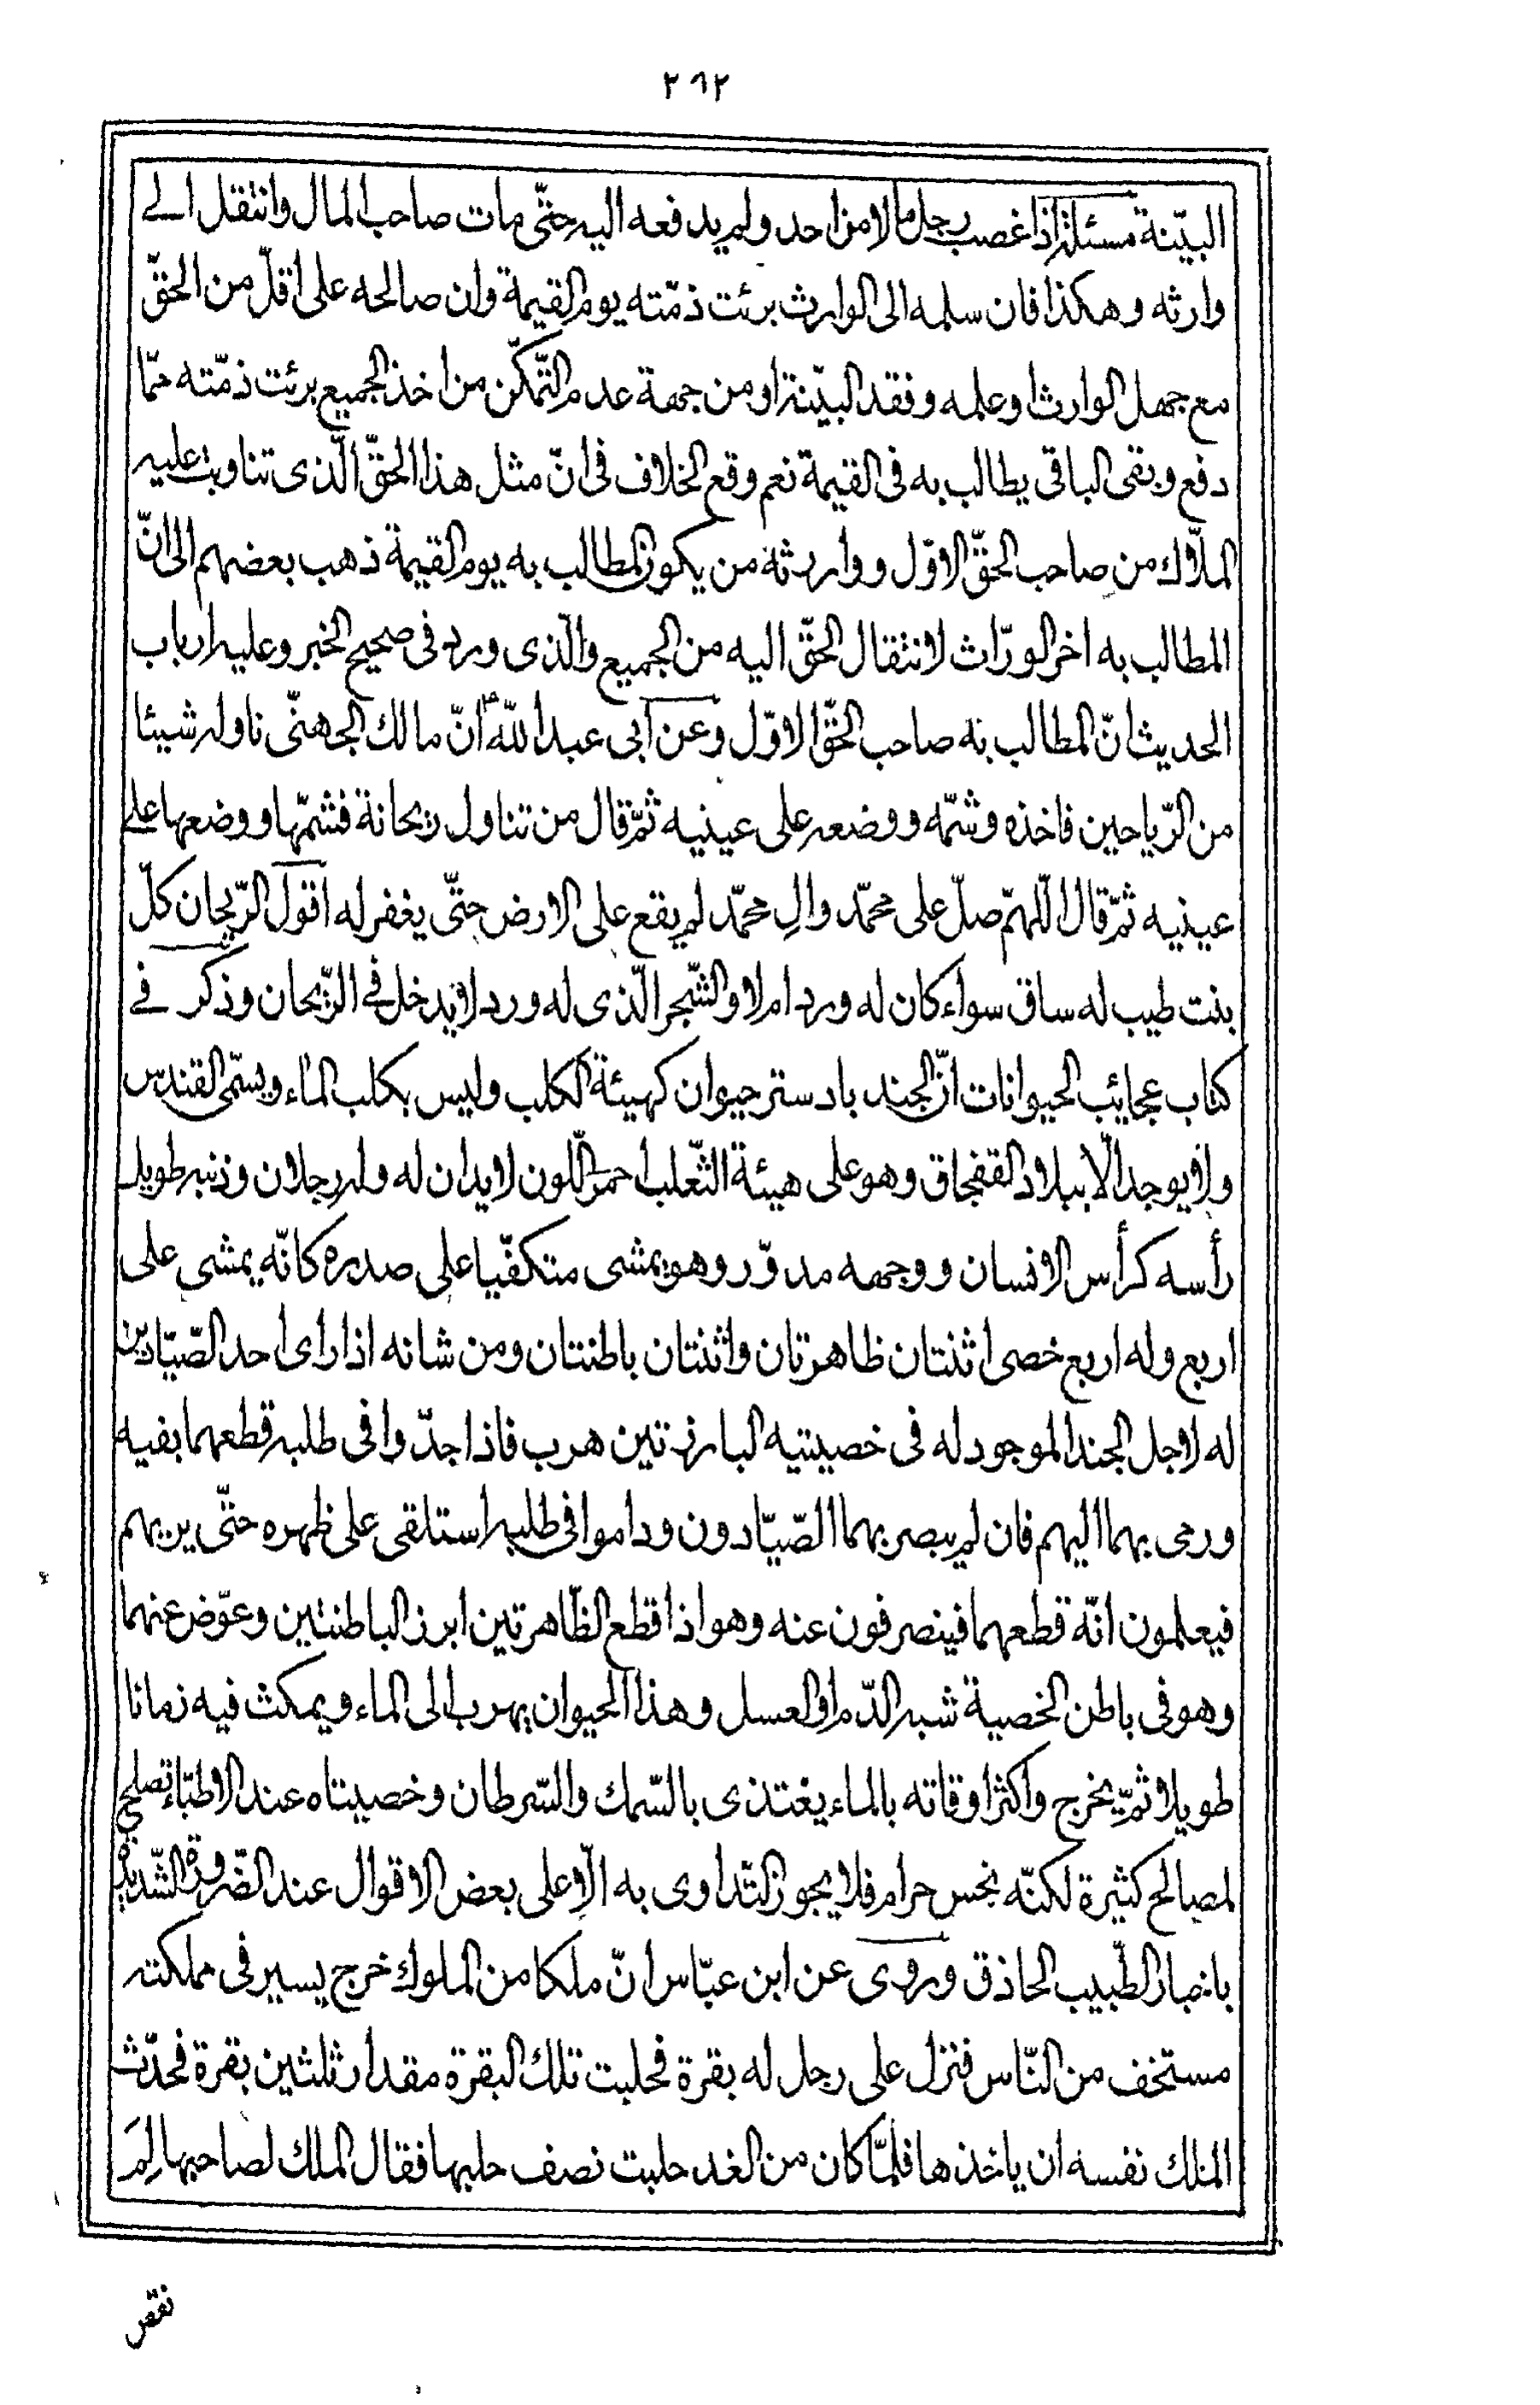 ٢٩٢
البيّنة مسئلة اذا غصب رجل مالا من احد ولم يدفعه اليه حتّى مات صاحب المال وانتقل الى
وارثه وهكذا فان سلمه الى الوارث برئت ذمّته يوم القيمة وان صالحه على اقلّ من الحقّ
مع جهل الوارث او علمه وفقد البيّنة او من جهة عدم التّمكّن من اخذ الجميع برئت ذمّته ممّا
دفع وبقى الباقى يطالب به فى القيمة نعم وقع الخلاف فى انّ مثل هذا الحقّ الّذى تناوبت عليه
الملّاك من صاحب الحقّ الاوّل ووارثه من يكون المطالب به يوم القيمة ذهب بعضهم الى انّ
المطالب به اخر الورّاث لانتقال الحقّ اليه من الجميع والّذى ورد فى صحيح الخبر وعليه ارباب
الحديث انّ المطالب به صاحب الحقّ الاوّل وعن ابى عبد اللّه ع انّ مالك الجهنّى ناوله شيئا
من الرّياحين فاخذه وشمّه ووضعه على عينيه ثمّ قال من تناول ريحانة فشمّها ووضعها على
عينيه ثمّ قال اللّهمّ صلّ على محمّد والِ محمّد لم يقع على الارض حتّى يغفر له اقول الرّيحان كلّ
بنت طيب له ساق سواء كان له ورد ام لا والشّجر الّذى له ورد لا يدخل فى الرّيحان وذكر فى
كتاب عجايب الحيوانات انّ الجند بادستر حيوان كهيئة الكلب وليس بكلب الماء ويسمّى القندس
ولا يوجد الّا ببلاد القفجاق وهو على هيئة الثّعلب احمر اللّون لا يدان له وله رجلان وذنبه طويل
رأسه كرأس الانسان ووجهه مدوّر وهو يمشى متكفّيا على صدره كانّه يمشى على
اربع وله اربع خصى اثنتان ظاهرتان واثنتان باطنتان ومن شانه اذا راى احد الصّيّادين
له لاجل الجند الموجود له فى خصيتيه البارزتين هرب فاذا جدّوا فى طلبه قطعهما بفيه
ورمى بهما اليهم فان لم يبصر بهما الصّيّادون وداموا فى طلبه استلقى على ظهره حتّى يريهم
فيعلمون انّه قطعهما فينصرفون عنه وهو اذا قطع الظّاهرتين ابرز الباطنتين وعوّض عنهما
وهو فى باطن الخصية شبه الدّم او العسل وهذا الحيوان يهرب الى الماء ويمكث فيه زمانا
طويلا ثمّ يخرج واكثر اوقاته بالماء يغتذى بالسّمك والسّرطان وخصيتاه عند الاطبّاء تصلح
لمصالح كثيرة لكنّه نجس حرام فلا يجوز التّداوى به الّا على بعض الاقوال عند الضّرورة الشّديدة
باخبار الطّبيب الحاذق وروى عن ابن عبّاس انّ ملكا من الملوك خرج يسير فى مملكته
مستخف من النّاس فنزل على رجل له بقرة فحلبت تلك البقرة مقدار ثلثين بقرة فحدّث
الملك نفسه ان ياخذها فلمّا كان من الغد حلبت نصف حلبها فقال الملك لصاحبها لِمَ
نقص